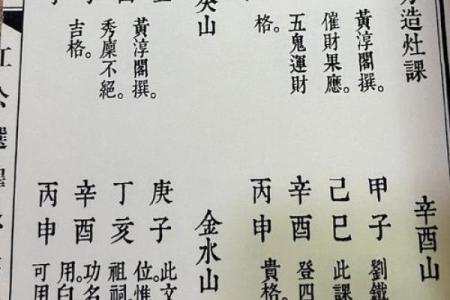 方造灶課
黃淳閣撰。
催財果應。
五鬼運財
格。
山
黃淳閣撰。
秀稟不絕。
吉格。
辛酉山
甲子
劉鐵
己巳
此課
辛酉
登四
丙申
貴格
金水山
庚子
此文
位惟
丁亥
祖祠
辛酉
功名
用白
丙申
可用
公選擇